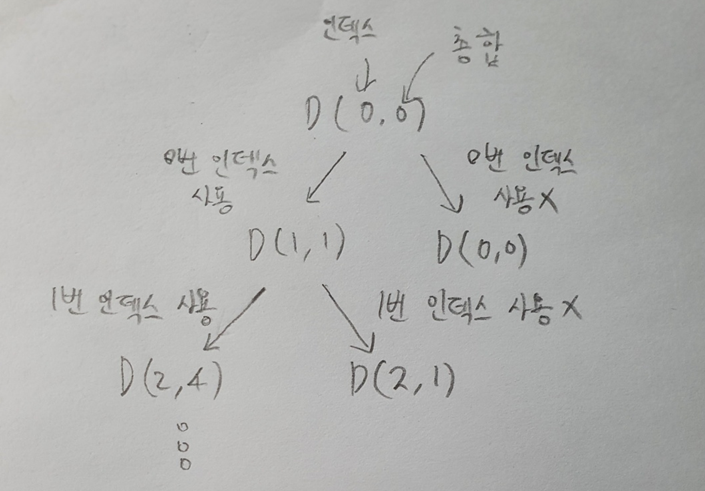 인덱스
총합
D(0,0)
0번 인덱스
사용
0번 인덱스
사용X
D(1,1)
D(0,0)
1번 인덱스 사용
1번 인덱스 사용X
D(2,4)
D(2,1)